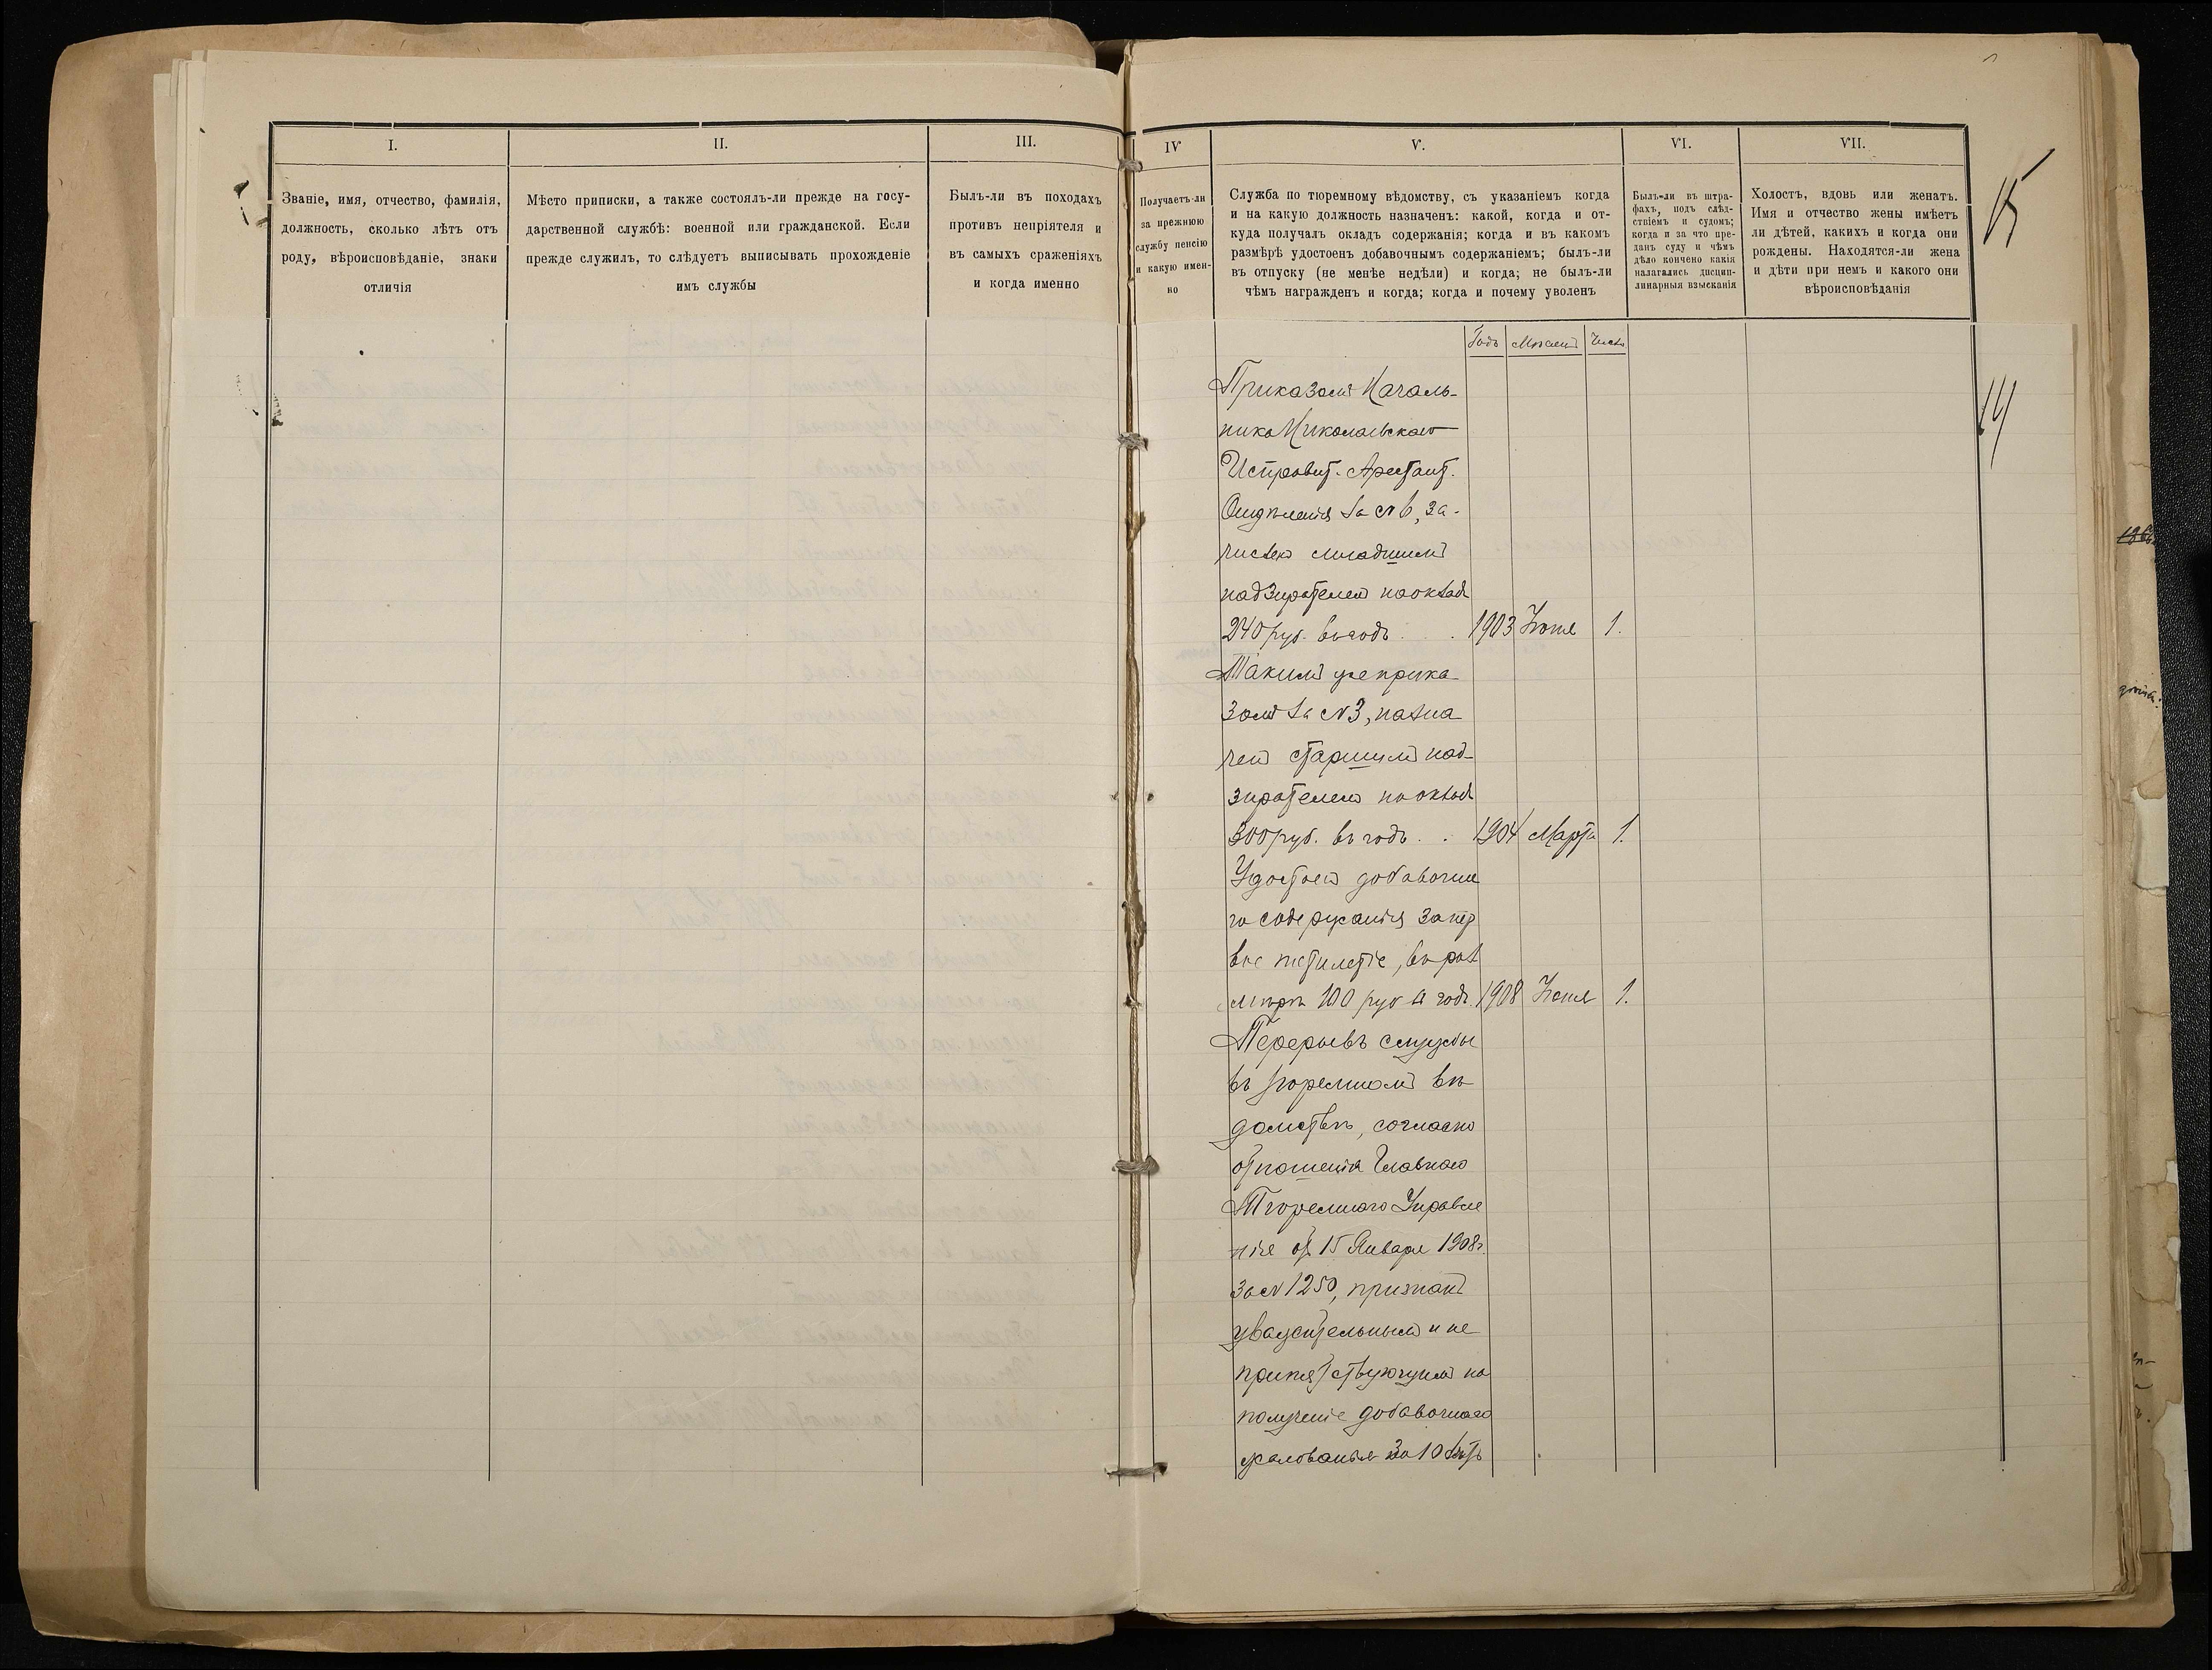 I.
Званіе, имя, отчество, фамилія,
должность, сколько лѣтъ отъ
роду, вѣроисповѣданіе, знаки
отличія
II.
Мѣсто приписки, а также состоялъ-ли прежде на госу-
дарственной службѣ: военной или гражданской. Если
прежде служилъ, то слѣдуетъ выписывать прохожденіе
имъ службы
III.
Былъ-ли въ походахъ
противъ непріятеля и
въ самыхъ сраженіяхъ
и когда именно
IV
Получаетъ-ли
за прежнюю
службу пенсію
и какую имен-
но
V.
Служба по тюремному вѣдомству, съ указаніемъ когда
и на какую должность назначенъ: какой, когда и от-
куда получалъ окладъ содержанія; когда и въ какомъ
размѣрѣ удостоенъ добавочнымъ содержаніемъ; былъ-ли
въ отпуску (не менѣе недѣли) и когда; не былъ-ли
чѣмъ награжденъ и когда; когда и почему уволенъ
VI.
Былъ-ли въ штра-
фахъ, подъ слѣд-
ствіемъ и судомъ;
когда и за что пре-
данъ суду и чѣмъ
дѣло кончено какія
налагались дисцип-
линарныя взысканія
VII.
Холостъ, вдовъ или женатъ.
Имя и отчество жены имѣетъ
ли дѣтей, какихъ и когда они
рождены. Находятся-ли жена
и дѣти при немъ и какого они
вѣроисповѣданія
15
14
Годъ Мѣсяцъ Число
Приказомъ Началь-
ника Николаевскаго
Исправит. Арестант.
Отдѣленія за № 6, за-
численъ младшимъ
надзирателемъ на окладъ
240 руб. въ годъ . . 1903 Іюня 1.
Такимъ же прика-
зомъ за № 3, назна
ченъ старшимъ над-
зирателемъ на окладъ
300 руб. въ годъ . . 1904 Марта 1.
Удостоенъ добавочна
го содержанія за пер
вое пятилетіе, въ раз
мѣрѣ 100 руб въ годъ. 1908 Іюня 1.
Перерывъ службы
въ тюремномъ вѣ
домствѣ, согласно
отношенія Главнаго
Тюремнаго Управле
нія от 15 Января 1908 г.
за № 1250, признанъ
уважительнымъ и не
припятствующимъ на
полученіе добавочнаго
жалованья за 10 лѣтъ